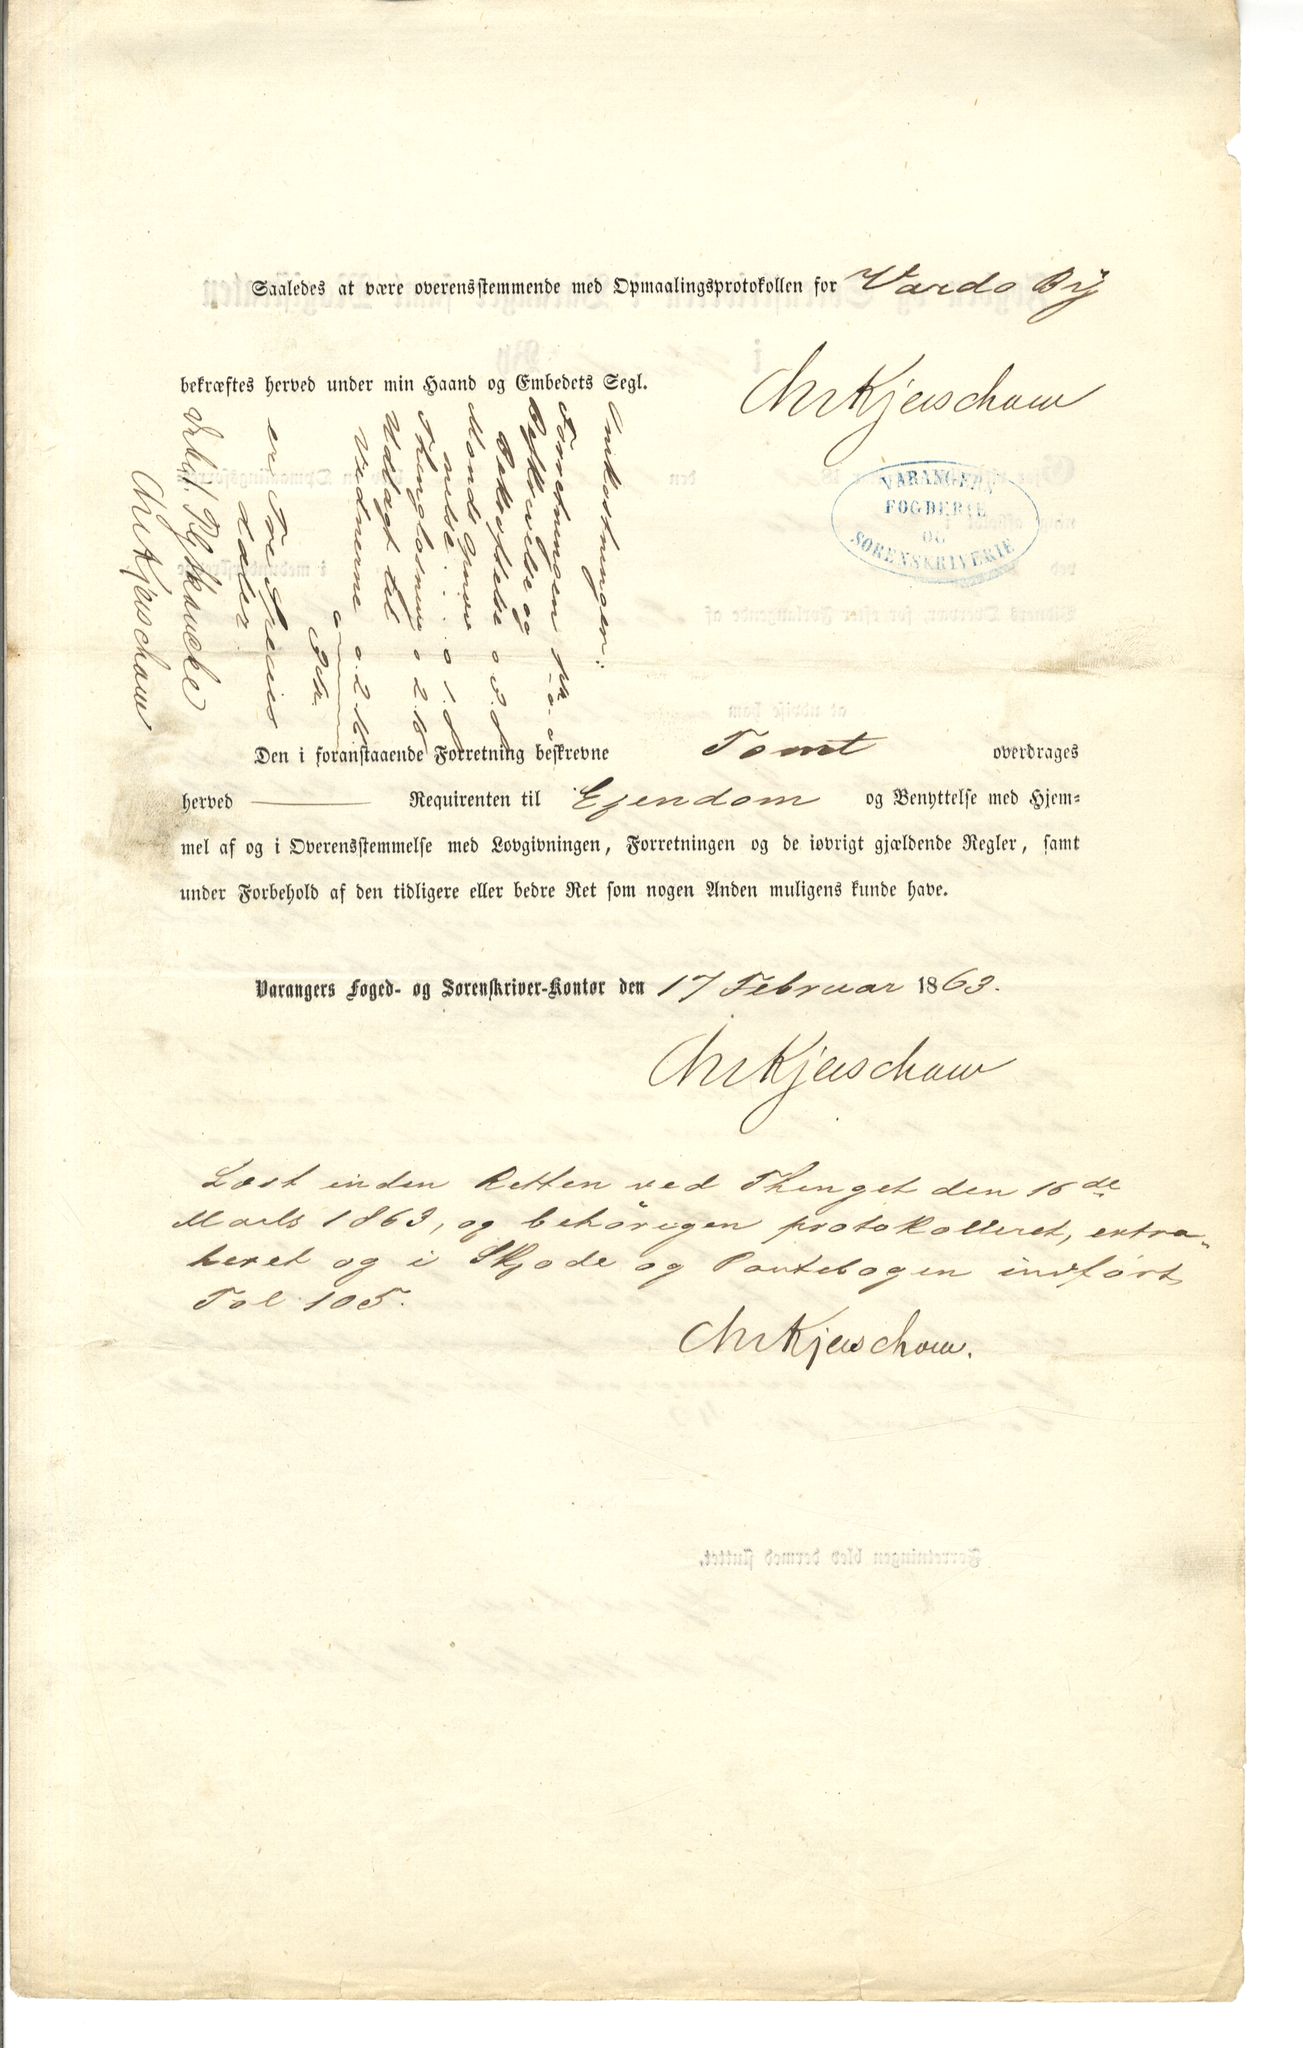 Saaledes at være overensstemmende med Opmaalingsprotokollen for Vardo By
bekræftes herved under min Haand og Embedets Segl.
Chr Kjerschow
VARANGERN
FOGDERIE
OG
SORENSKRIVERIE
Omkostninger:
Forretningen
Beskrivelse og
Bekræftelse o. 3. 8
o. 1. 8
Thinglæsning o 2. 16
Udlagt til
Vidnerne o. 2. 16
3
er Tre
daler.
Chr Kjerschow
Den i foranstaaende Forretning beskrevne Tomt overdrages
herved Requirenten til Ejendom og Benyttelse med Hjem-
mel af og i Overensstemmelse med Lovgivningen, Forretningen og de iøvrigt gjældende Regler, samt
under Forbehold af den tidligere eller bedre Ret som nogen Anden muligens kunde have.
Varangers Foged- og Sorenskriver-Kontor den 17 Februar 1863.
Chr Kjerschow
Læst inden Retten ved Thinget den 16de
Marts 1863, og behörigen protokolleret, extra-
heret og i Skjøde og Pantebogen indfört
Fol 105.
Chr Kjerschow.